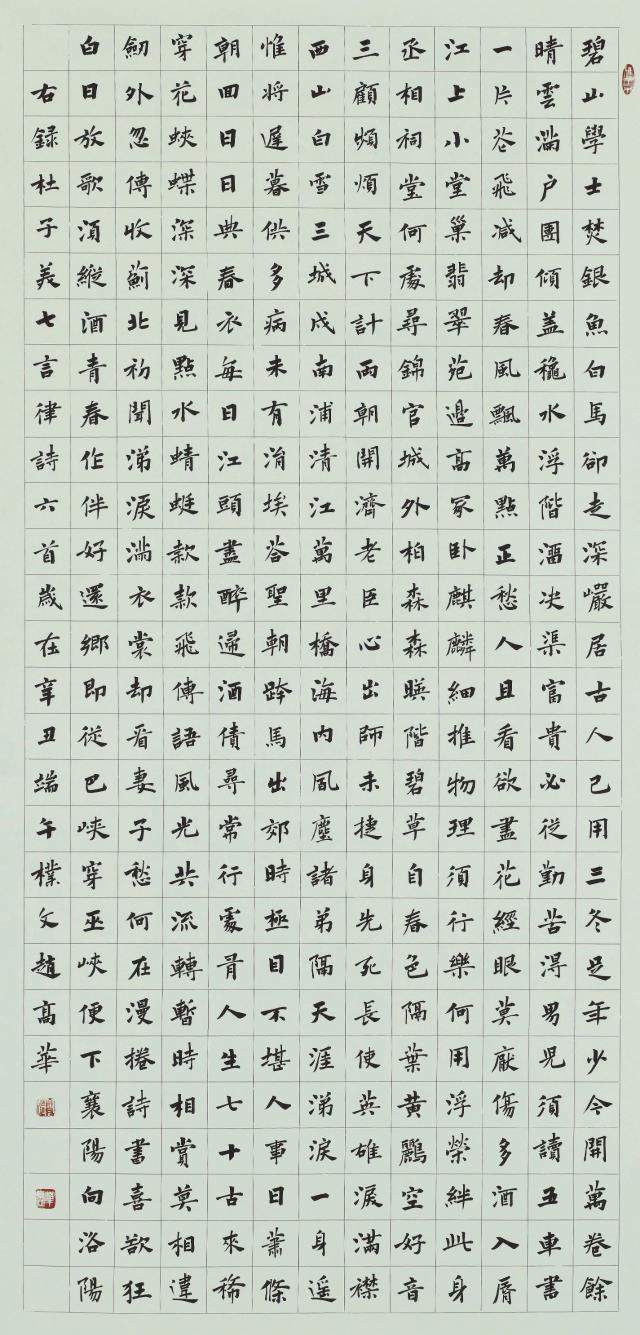 碧山學士焚銀魚白馬卻走深巖居古人已用三冬足年少今開萬卷餘
晴雲滿户團傾蓋穐水浮階溜决渠富貴必從勤苦得男兒須讀五車書
一片花飛减却春風飄萬點正愁人且看欲盡花經眼莫厭傷多酒入脣
江上小堂巢翡翠苑邊高冢卧麒麟細推物理須行樂何用浮榮絆此身
丞相祠堂何處尋錦官城外柏森森暎階碧草自春色隔葉黄鸝空好音
三顧頻煩天下計兩朝開濟老臣心出師未捷身先死長使英雄淚滿襟
西山白雪三城戍南浦清江萬里橋海内風塵諸弟隔天涯涕淚一身遥
惟將遲暮供多病未有涓埃答聖朝跨馬出郊時極目不堪人事日蕭條
朝回日日典春衣每日江頭盡醉歸酒債尋常行處有人生七十古來稀
穿花蛺蝶深深見點水蜻蜓款款飛傳語風光共流轉暫時相賞莫相違
劒外忽傳收薊北初聞涕淚滿衣裳却看妻子愁何在漫捲詩書喜欲狂
白日放歌須縱酒青春作伴好還鄉即從巴峽穿巫峽便下襄陽向洛陽
右錄杜子美七言律詩六首歲在辛丑端午樸文趙高華